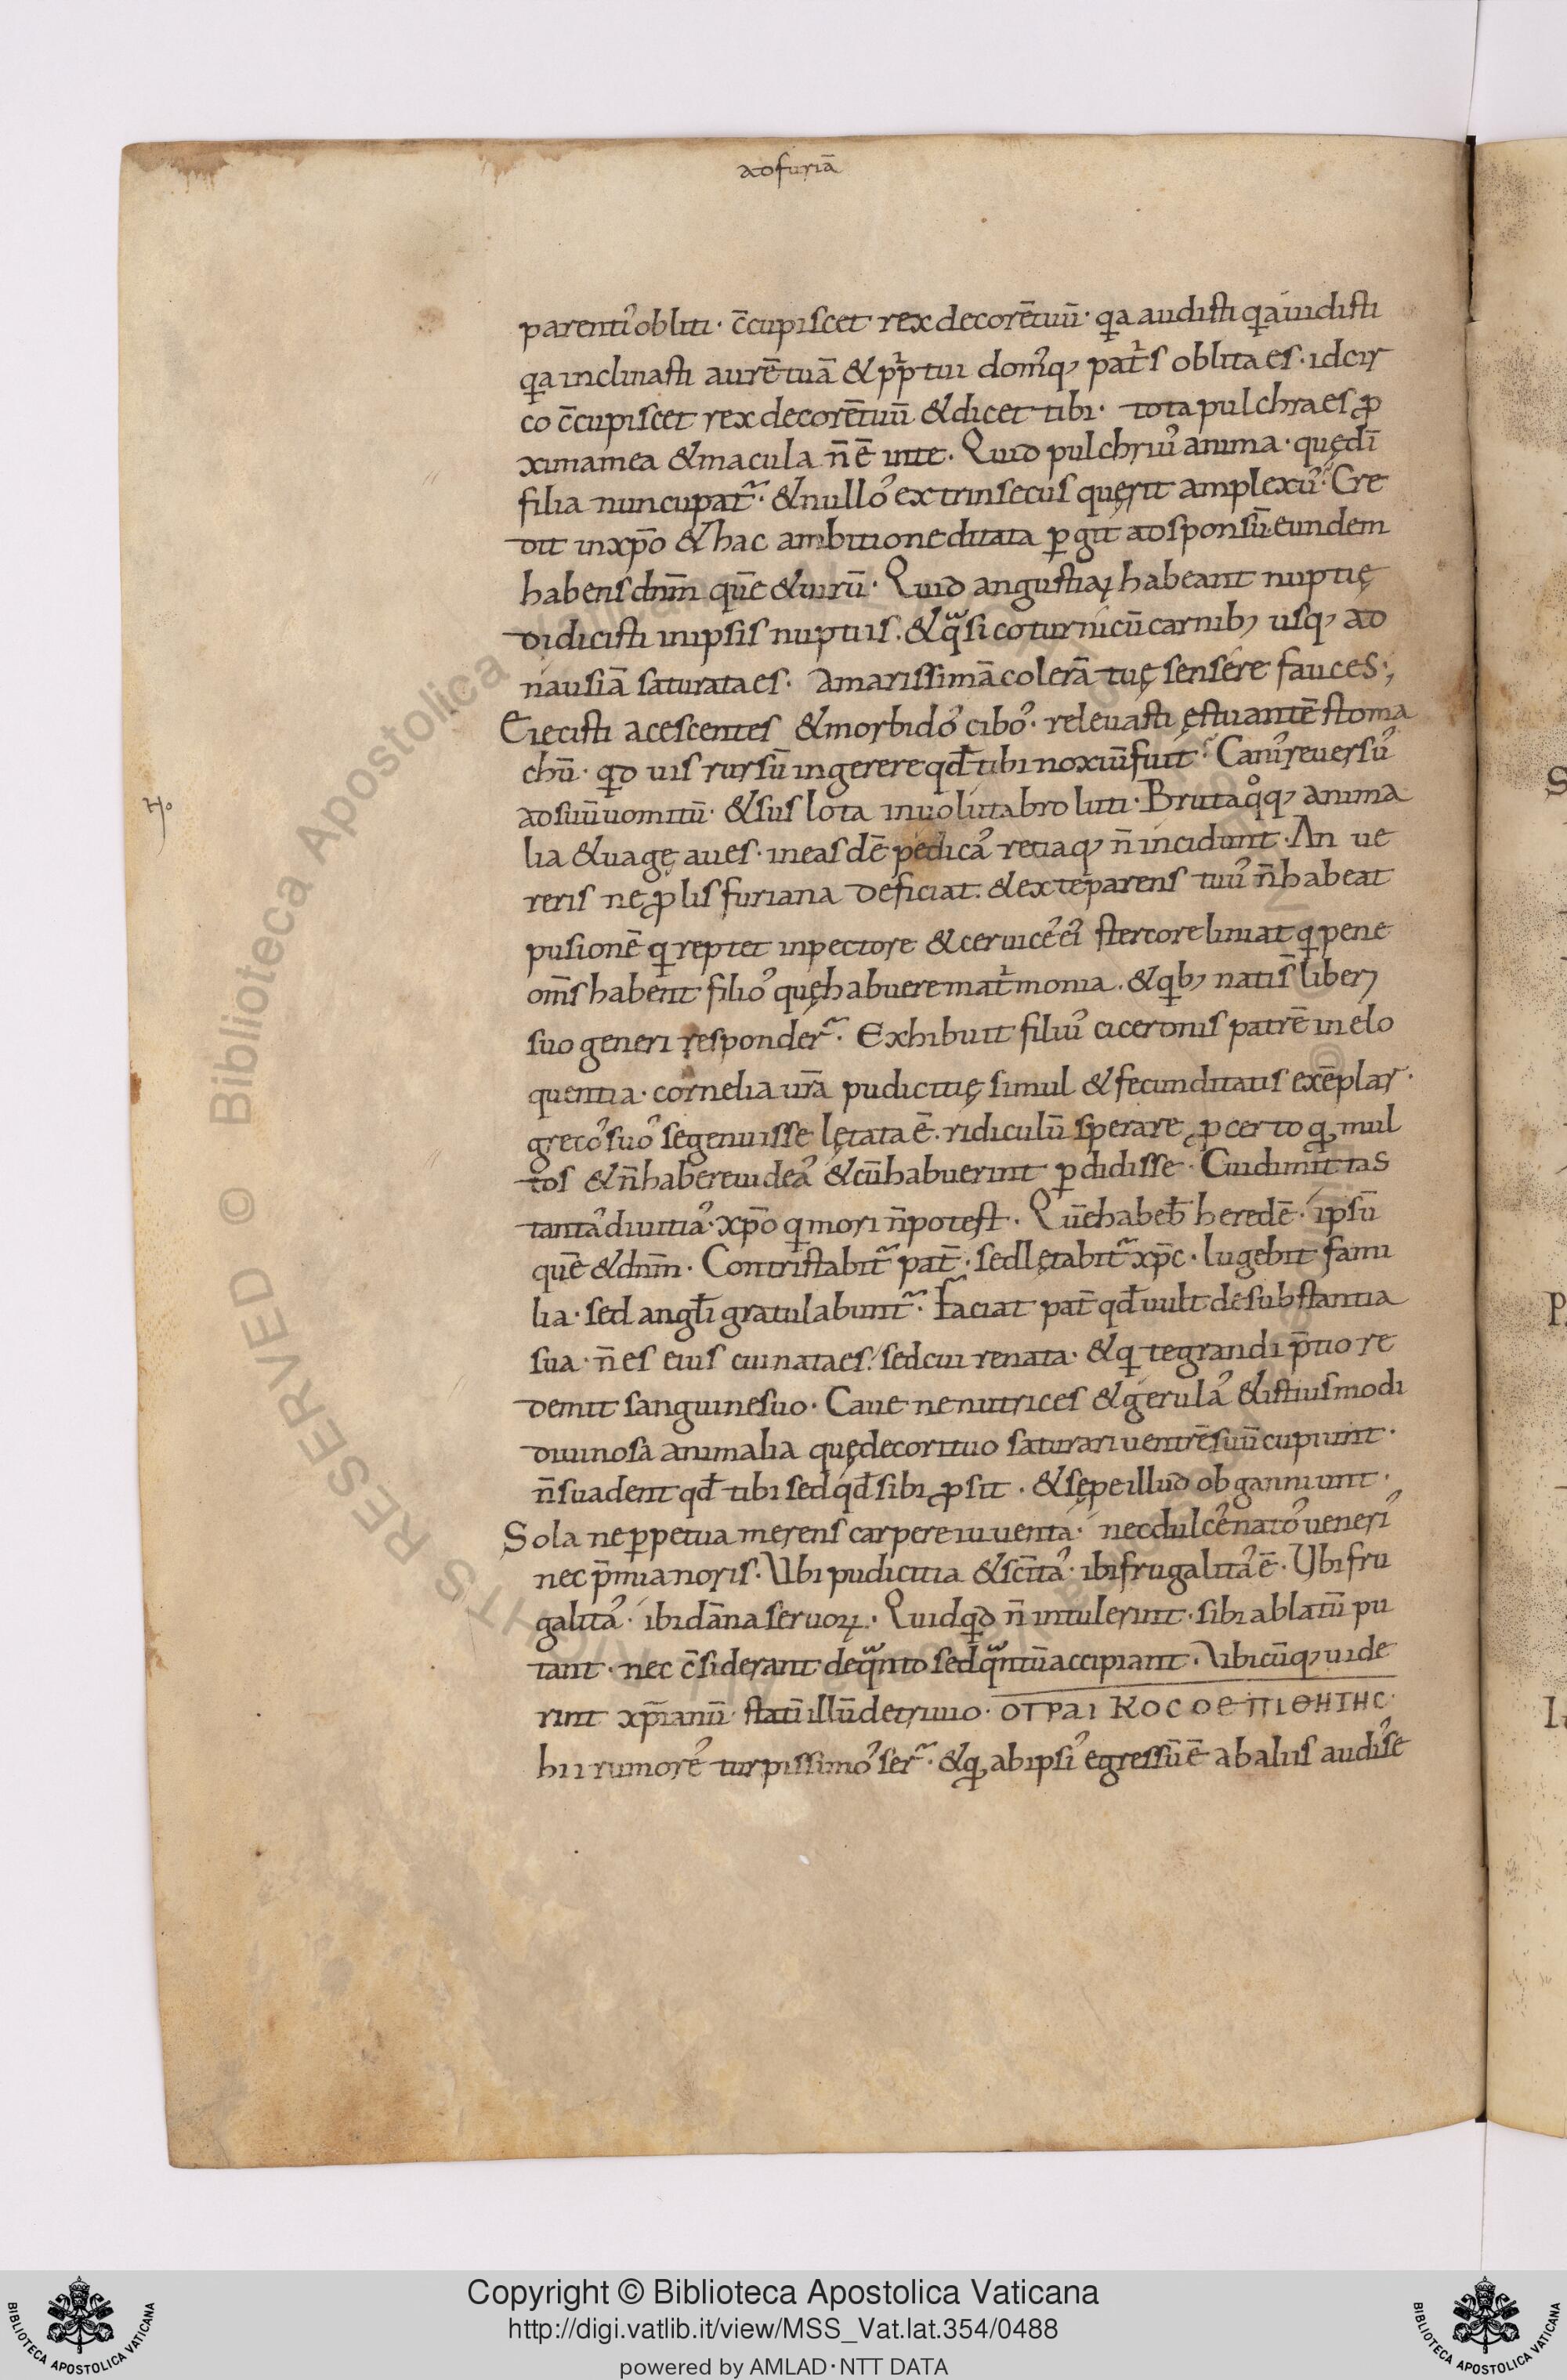 ad furiā
parenti᷒ obliti · c̄cupiscet rex decorē tuū · qͥa audisti qͥa uidisti
qͥa inclinasti aurē tuā & pp̄ł tui dom᷒q; patͥs oblita es · idcir
co c̄cupiscet rex decorē tuū & dicet tibi · tota pulchra es ꝓ
xima mea & macula n̄ ē in te · Quid pulchriu᷒ anima · quę dī
filia nuncupat᷑ · & nullo᷒ extrinsecus quęrit amplexu᷒ · Cre
dit in xp̄o & hac ambitione ditata ꝑgit ad sponsū eundem
habens dn̄m quē & uirū · Quid angustiaꝝ habeant nuptię
didicisti in ipsis nuptiis · & qᷓsi coturnicū carnib; usq; ad
nausiā saturata es · Amarissimā colerā tuę sensere fauces ·,
Eiecisti acescentes & morbido᷒ cibo᷒ · releuasti ęstuantē stoma
chū · qͥd uis rursū ingerere qđ tibi noxiū fuit · Cani᷒ reuersu᷒
ad suū uomitū · & sus lota in uolutabro luti · Bruta qͦq; anima
lia & uagę aues · in easdē pedica᷒ retiaq; n̄ incidunt · An ue
reris ne ꝓlis furiana deficiat · & ex te parens tuu᷒ n̄ habeat
pusionē qͥ reptet in pectore & ceruice᷒ ei᷒ stercore liniat qͥ pene
om̄s habent filio᷒ quę habuere matͥmonia · & qͥb; nati s̄ liberi
suo generi responder᷑ · Exhibuit filiu᷒ ciceronis patrē in elo
quentia · cornelia ur̄a pudicitię simul & fecunditatis exēplar ·
greco᷒ suo᷒ se genuisse lętata ē · ridiculū sperare ꝓ certo qͥ mul
tos & n̄ habere uidea᷒ & cū habuerint ꝑdidisse · Cui dimittas
tanta᷒ diuitia᷒ · xp̄o qͥ mori n̄ potest · Quē habeb̄ heredē · ipsū
quē & dn̄m · Contristabit᷑ pat̄ · sed lętabit᷑ xp̄c · lugebit fami
lia · sed angłi gratulabunt᷑ · Faciat pat̄ qđ uult de substantia
sua · n̄ es eius cui nata es · sed cui renata · & qͥ te grandi p̄tio re
demit sanguine suo · Caue ne nutrices & gerula᷒ & istiusmodi
diuinosa animalia quę de corio tuo saturari uentrē suū cupiunt ·
n̄ suadent qđ tibi sed qđ sibi ꝓsit · & sępe illud obganniunt ·
Sola ne ꝑpetua merens carpere iuuenta · nec dulce᷒ nato᷒ ueneri᷒
nec p̄mia noris · Ubi pudicitia & sc̄ita᷒ · ibi frugalita᷒ ē · Ubi fru
galita᷒ · ibi dāna seruoꝝ · Quidqͥd n̄ intulerint · sibi ablatū pu
tant · nec c̄siderant de qᷓnto sed qᷓntū accipiant · Ubicūq; uide
rint xp̄ianū · statī illū de triuio · ΟΓΡΑΙ ΚΟC ΟΕΠΙΘΗΤΗC ·
hii rumore᷒ turpissimo᷒ ser᷑ · & qͥ ab ipsi᷒ egressū ē ab aliis audi᷒se